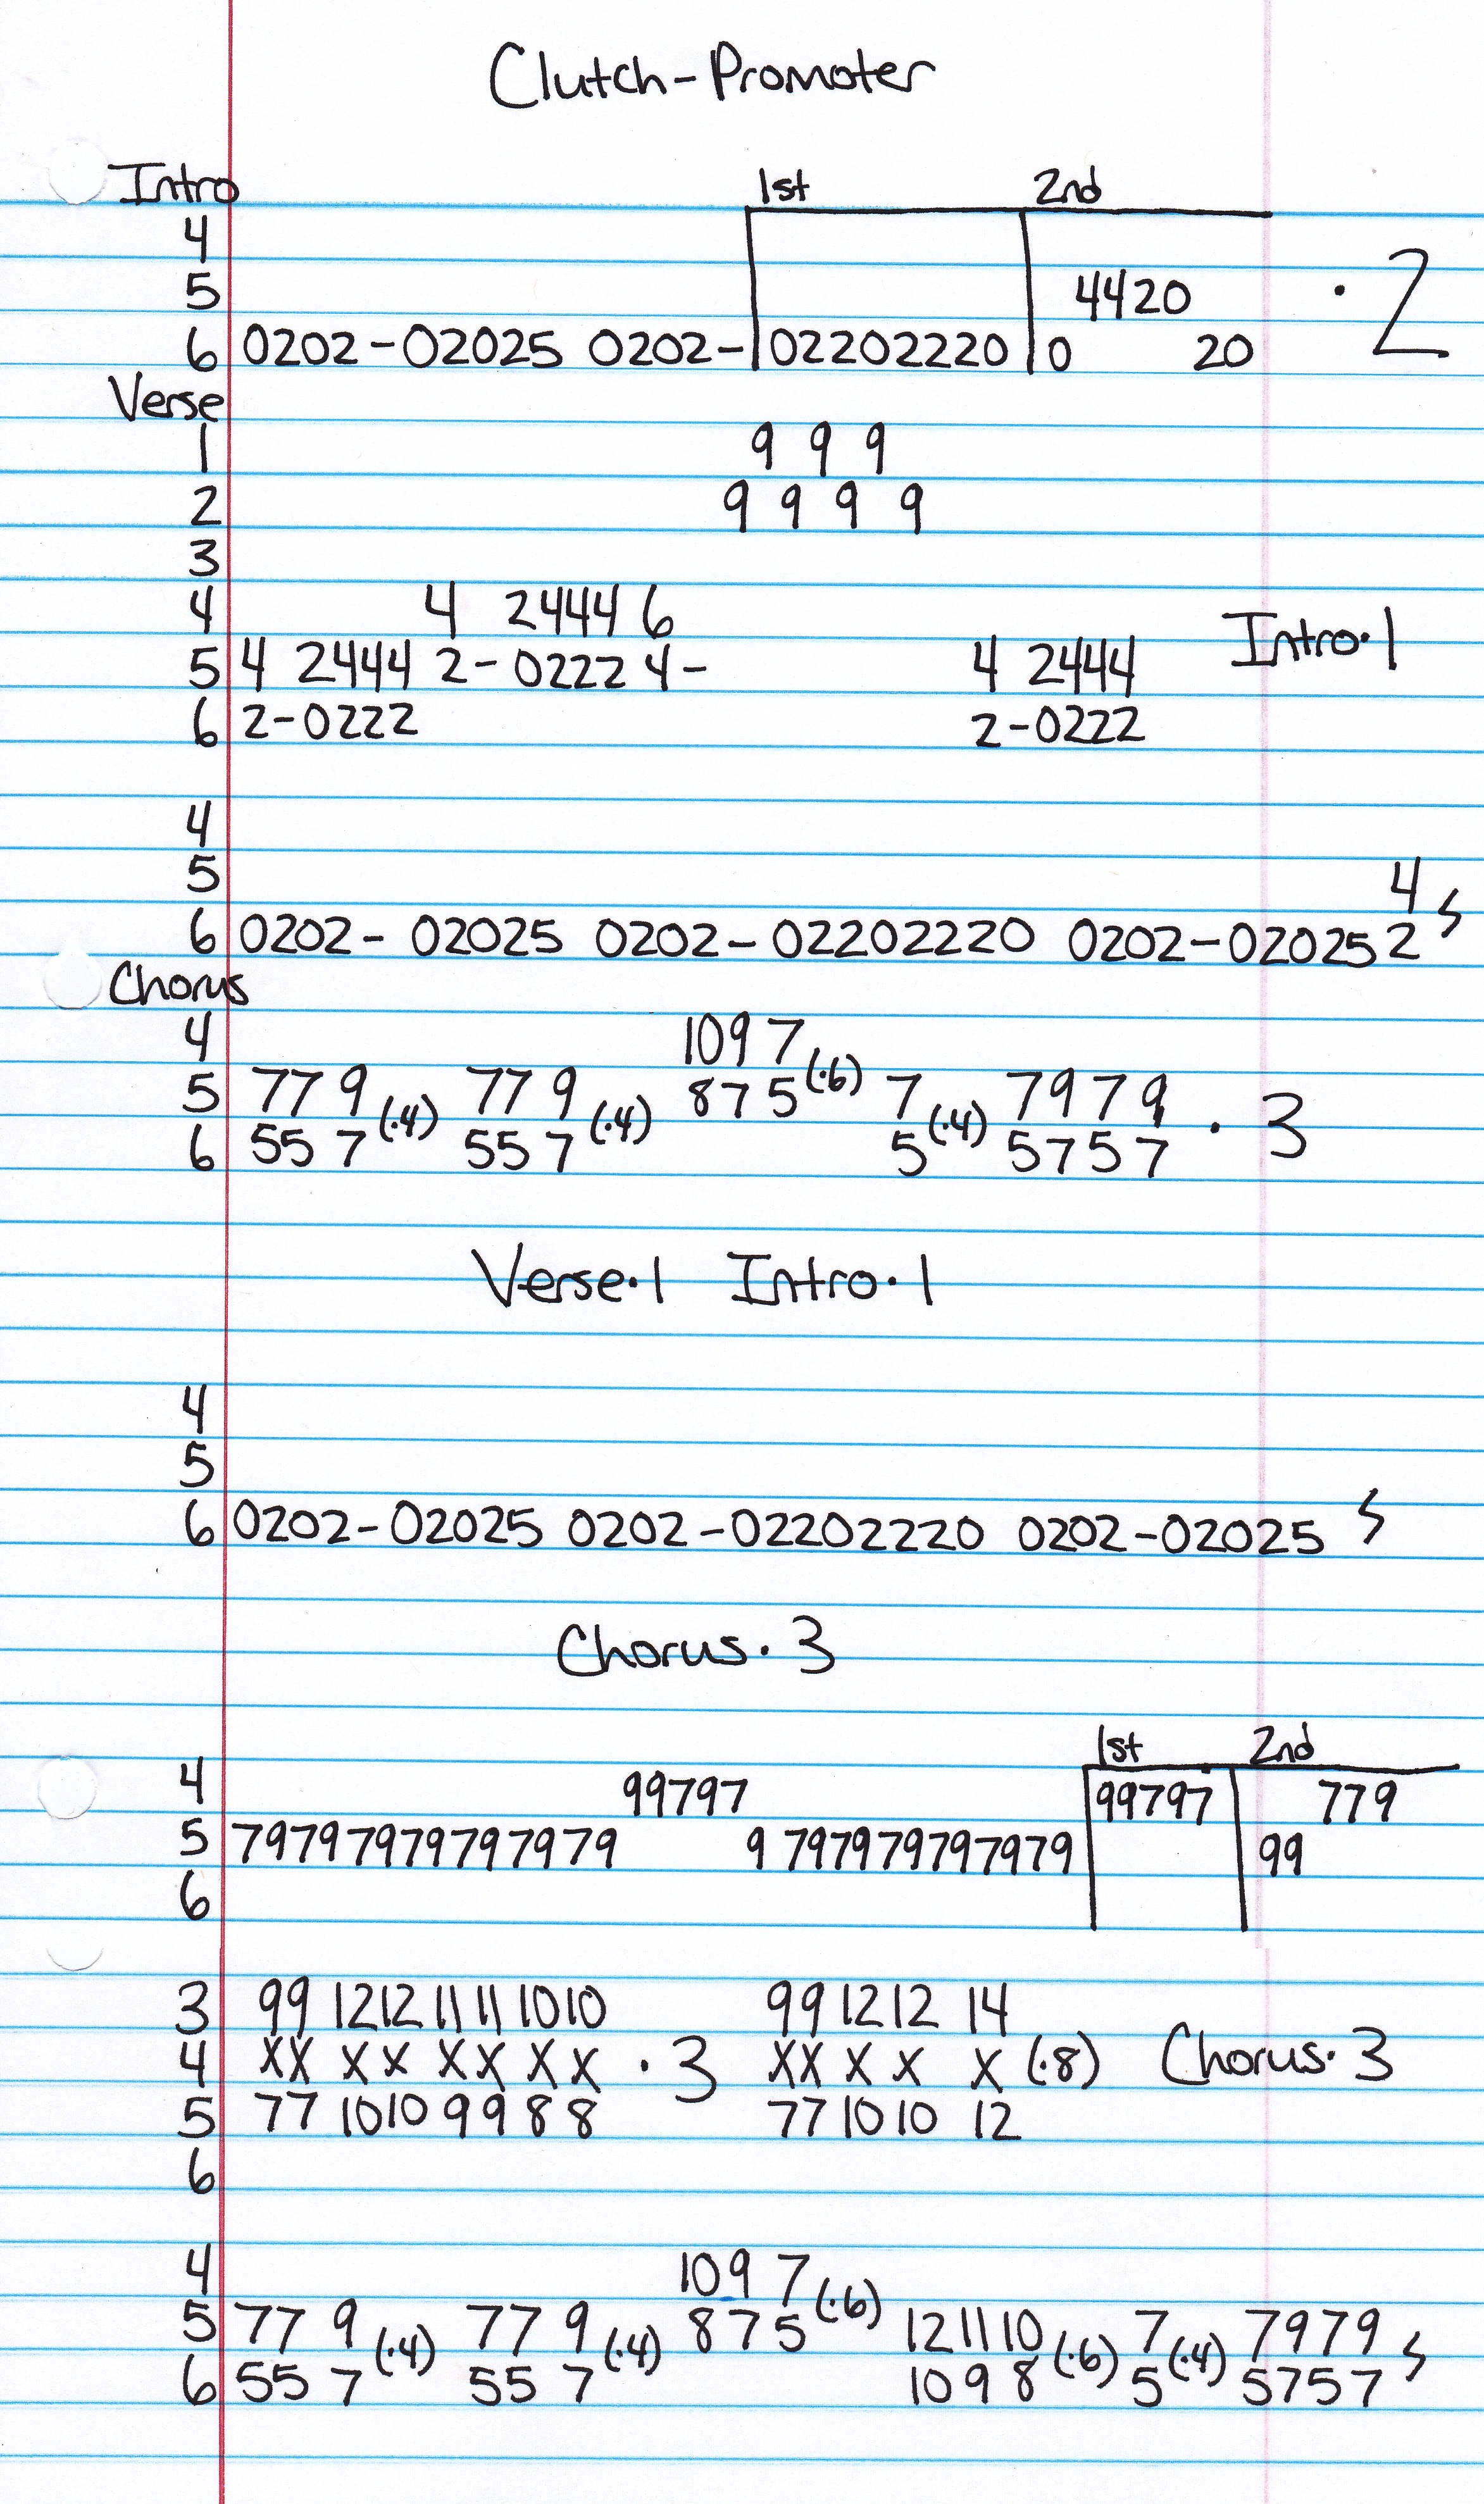 Clutch-Promoter
Intro 1st 2nd
4
5 4420 · 2
6 0202-02025 0202- 02202220 0 20
Verse
1 9 9 9
2 9 9 9 9
3
4 4 2444 6
5 4 2444 2-0222 4- 4 2444 Intro·1
6 2-0222 2-0222
4
5 4
6 0202- 02025 0202-02202220 0202-02025 2
Chorus
4 109 7
5 77 9 (·4) 77 9 (·4) 8 7 5 (·6) 7 (·4) 7979 · 3
6 55 7 55 7 5 5757
Verse·1 Intro·1
4
5
6 0202-02025 0202-02202220 0202-02025
Chorus·3
1st 2nd
4 99797 99797 779
5 79797979797979 9 797979797979 99
6
3 99 1212 11 11 1010 99 1212 14
4 XX X X XX X X · 3 XX X X X (·8) Chorus·3
5 77 1010 99 8 8 77 1010 12
6
4 109 7
5 77 9 (·4) 77 9 (·4) 8 7 5 (·6) 121110 (·6) 7 (·4) 7979
6 55 7 55 7 109 8 5 5757